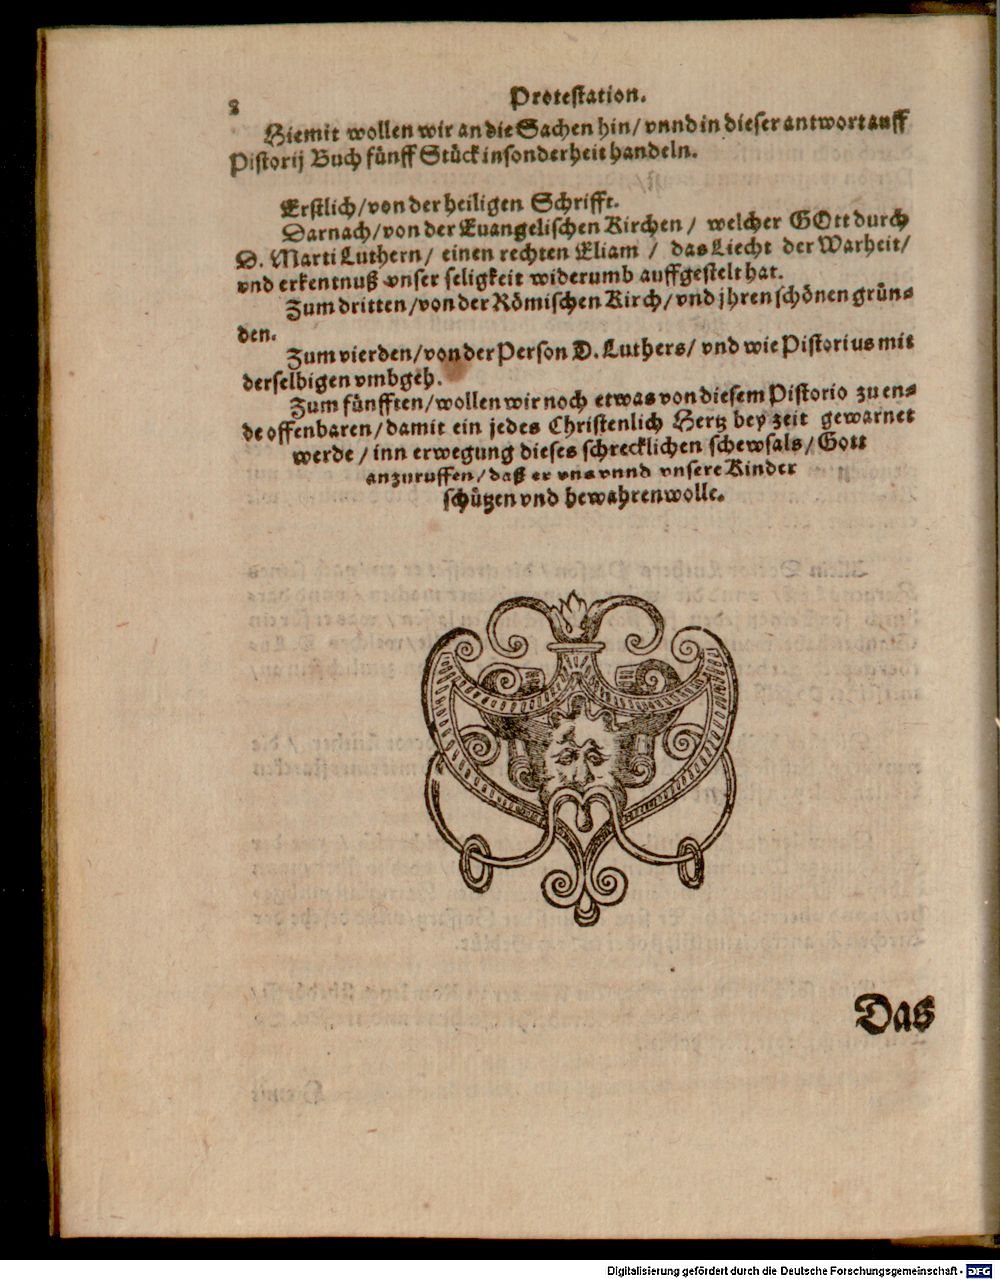 8
Protestation.
Hiemit wollen wir an die Sachen hin/ vnnd in dieser antwort auff
Pistorij Buch fünff Stück insonderheit handeln.
Erstlich/ von der heiligen Schrifft.
Darnach/ von der Euangelischen Kirchen/ welcher GOtt durch
D. Marti Luthern/ einen rechten Eliam/ das Liecht der Warheit/
vnd erkentnuß vnser seligkeit widerumb auffgestelt hat.
Zum dritten/ von der Römischen Kirch/ vnd jhren schönen grün-
den.
Zum vierden/ von der Person D. Luthers/ vnd wie Pistorius mit
derselbigen vmbgeh.
Zum fünfften/ wollen wir noch etwas von diesem Pistorio zu en-
de offenbaren/ damit ein jedes Christenlich Hertz bey zeit gewarnet
werde/ inn erwegung dieses schrecklichen schewsals/ Gott
anzuruffen/ daß er vns vnnd vnsere Kinder
schützen vnd bewahren wolle.
Das
Digitalisierung gefördert durch die Deutsche Forschungsgemeinschaft - DFG